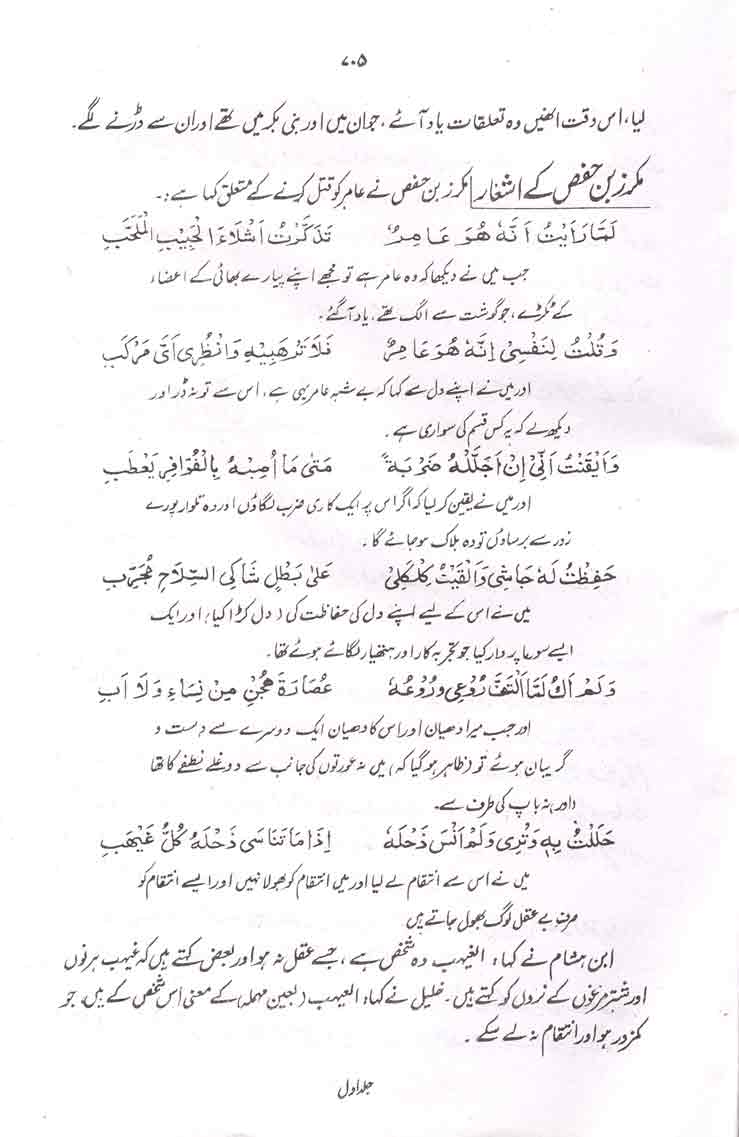 ۷۰۵
لیا، اس وقت انھیں وہ تعلقات یاد آئے، جو ان میں اور بنی بکر میں تھے اور ان سے ڈرنے لگے۔
مکرز بن حفص کے اشعار مکرز بن حفص نے عامر کو قتل کرنے کے متعلق کہا ہے :۔
لَمَّا رَأَيْتُ أَنَّهُ هُوَ عَامِرٌ تَذَكَّرْتُ أَشْلَاءَ الْحَبِيبِ الْمُلَحَّبِ
جب میں نے دیکھا کہ وہ عامر ہے تو مجھے اپنے پیارے بھائی کے اعضاء
کے ٹکڑے، جو گوشت سے الگ تھے، یاد آگئے۔
وَقُلْتُ لِنَفْسِي إِنَّهُ هُوَ عَامِرٌ فَلَا تَرْهَبِيهِ وَانْظُرِي أَيَّ مَرْكَبِ
اور میں نے اپنے دل سے کہا کہ بے شبہ عامر یہی ہے، اس سے تو نہ ڈر اور
دیکھ لے کہ یہ کس قسم کی سواری ہے۔
وَأَيْقَنْتُ أَنِّي إِنْ أُجَلِّلْهُ ضَرْبَةً مَتٰى مَا أُصِبْهُ بِالْفُرَافِرِ يَعْطَبِ
اور میں نے یقین کر لیا کہ اگر اس پر ایک کاری ضرب لگاؤں اور وہ تلوار پورے
زور سے برساؤں تو وہ ہلاک ہو جائے گا۔
حَفِظْتُ لَهُ جَاشِي وَأَلْقَيْتُ كَلْكَلِي عَلٰى بَطَلٍ شَاكِي السِّلَاحِ مُجَرَّبِ
میں نے اس کے لیے اپنے دل کی حفاظت کی (دل کڑا کیا) اور ایک
ایسے سورما پر وار کیا جو تجربہ کار اور ہتھیار لگائے ہوئے تھا۔
وَلَمْ أَكُ لَمَّا الْتَفَّ رُوعِي وَرُوعُهُ عُصَارَةَ هُجْنٍ مِنْ نِسَاءٍ وَلَا أَبِ
اور جب میرا دھیان اور اس کا دھیان ایک دوسرے سے دست و
گریبان ہوئے تو (ظاہر ہو گیا کہ) میں نہ عورتوں کی جانب سے دوغلے نطفے کا تھا
(اور) نہ باپ کی طرف سے۔
حَلَلْتُ بِهِ وِتْرِي وَلَمْ أَنْسَ ذَحْلَهُ إِذَا مَا تَنَاسَى ذَحْلَهُ كُلُّ غَيْهَبِ
میں نے اس سے انتقام لے لیا اور میں انتقام کو بھولا نہیں اور ایسے انتقام کو
صرف بے عقل لوگ بھول جاتے ہیں
ابن ہشام نے کہا، الغیہب وہ شخص ہے، جسے عقل نہ ہو اور بعض کہتے ہیں کہ غیہب ہرنوں
اور شتر مرغوں کے نروں کو کہتے ہیں۔ خلیل نے کہا، العیہب (بعین مہملہ) کے معنی اس شخص کے ہیں، جو
کمزور ہو اور انتقام نہ لے سکے۔
جلد اول